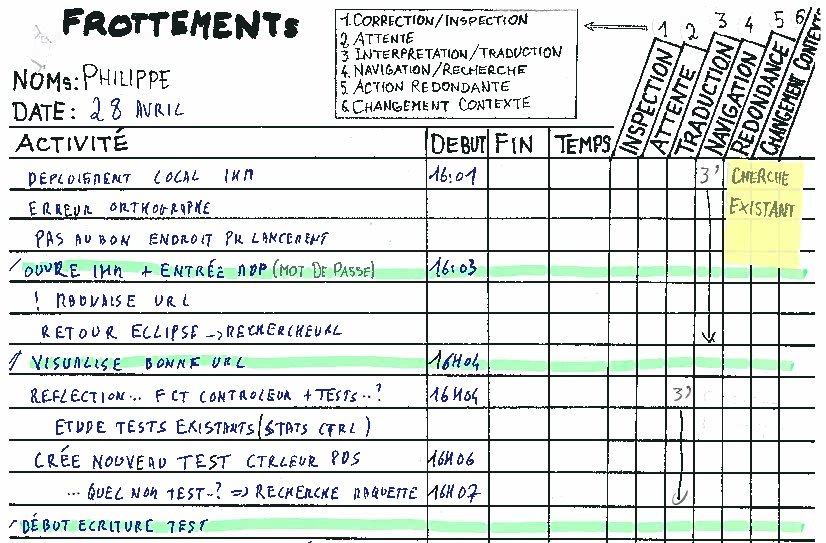 FROTTEMENTS
1 CORRECTION/INSPECTION
2 ATTENTE
3 INTERPRETATION/TRADUCTION
4 NAVIGATION/RECHERCHE
5 ACTION REDONDANTE
6 CHANGEMENT CONTEXTE
1 2 3 4 5 6
NOMS: PHILIPPE
DATE: 28 AVRIL
ACTIVITÉ DEBUT FIN TEMPS INSPECTION ATTENTE TRADUCTION NAVIGATION REDONDANCE CHANGEMENT CONTEXTE
DEPLOIEMENT LOCAL IHM 16:01 3' CHERCHE
ERREUR ORTHOGRAPHE EXISTANT
PAS AU BON ENDROIT PR LANCEMENT
OUVRE IHM + ENTRÉE MDP (MOT DE PASSE) 16:03
! MAUVAISE URL
RETOUR ECLIPSE -> RECHERCHE URL
VISUALISE BONNE URL 16H04
REFLECTION... FCT CONTROLEUR + TESTS..? 16H04 3'
ETUDE TESTS EXISTANTS (STATS CTRL)
CRÉE NOUVEAU TEST CTRLEUR PDS 16H06
... QUEL NOM TEST..? => RECHERCHE MAQUETTE 16H07
DÉBUT ECRITURE TEST